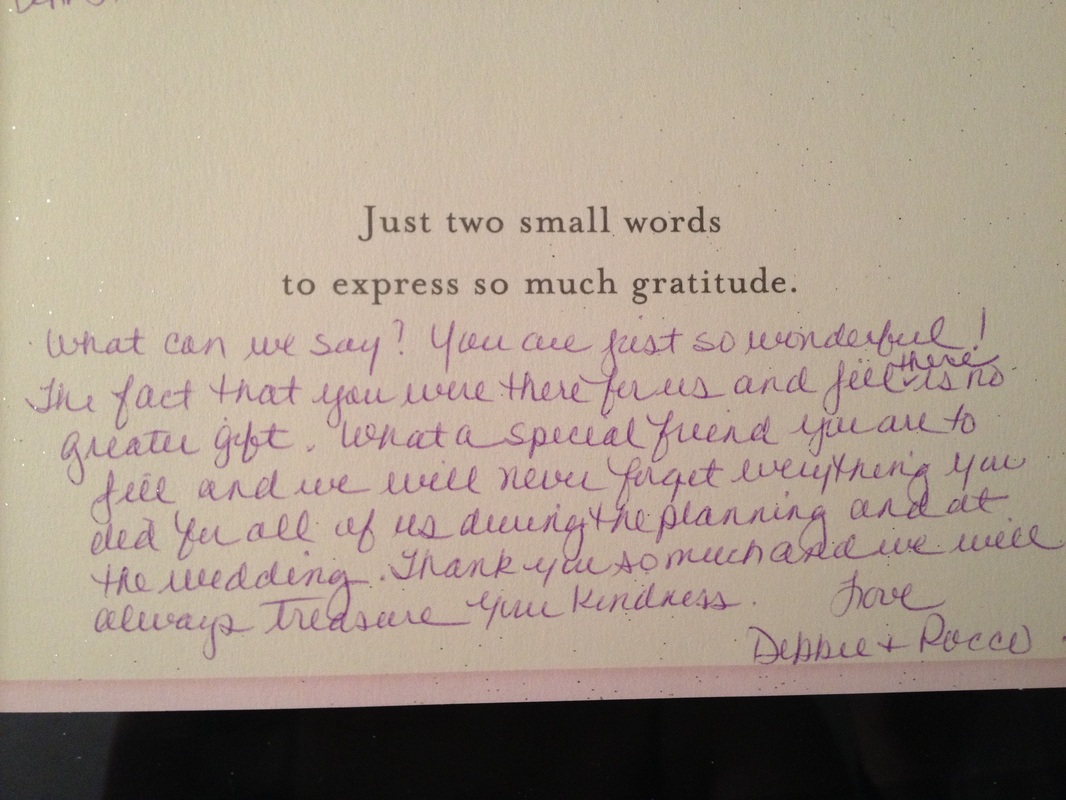 Just two small words
to express so much gratitude.
What can we say? You are just so wonderful!
The fact that you were there for us and Jill there is no
greater gift. What a special friend you are to
Jill and we will never forget everything you
did for all of us during the planning and at
the wedding. Thank you so much and we will
always treasure your kindness. Love
Debbie + Rocco